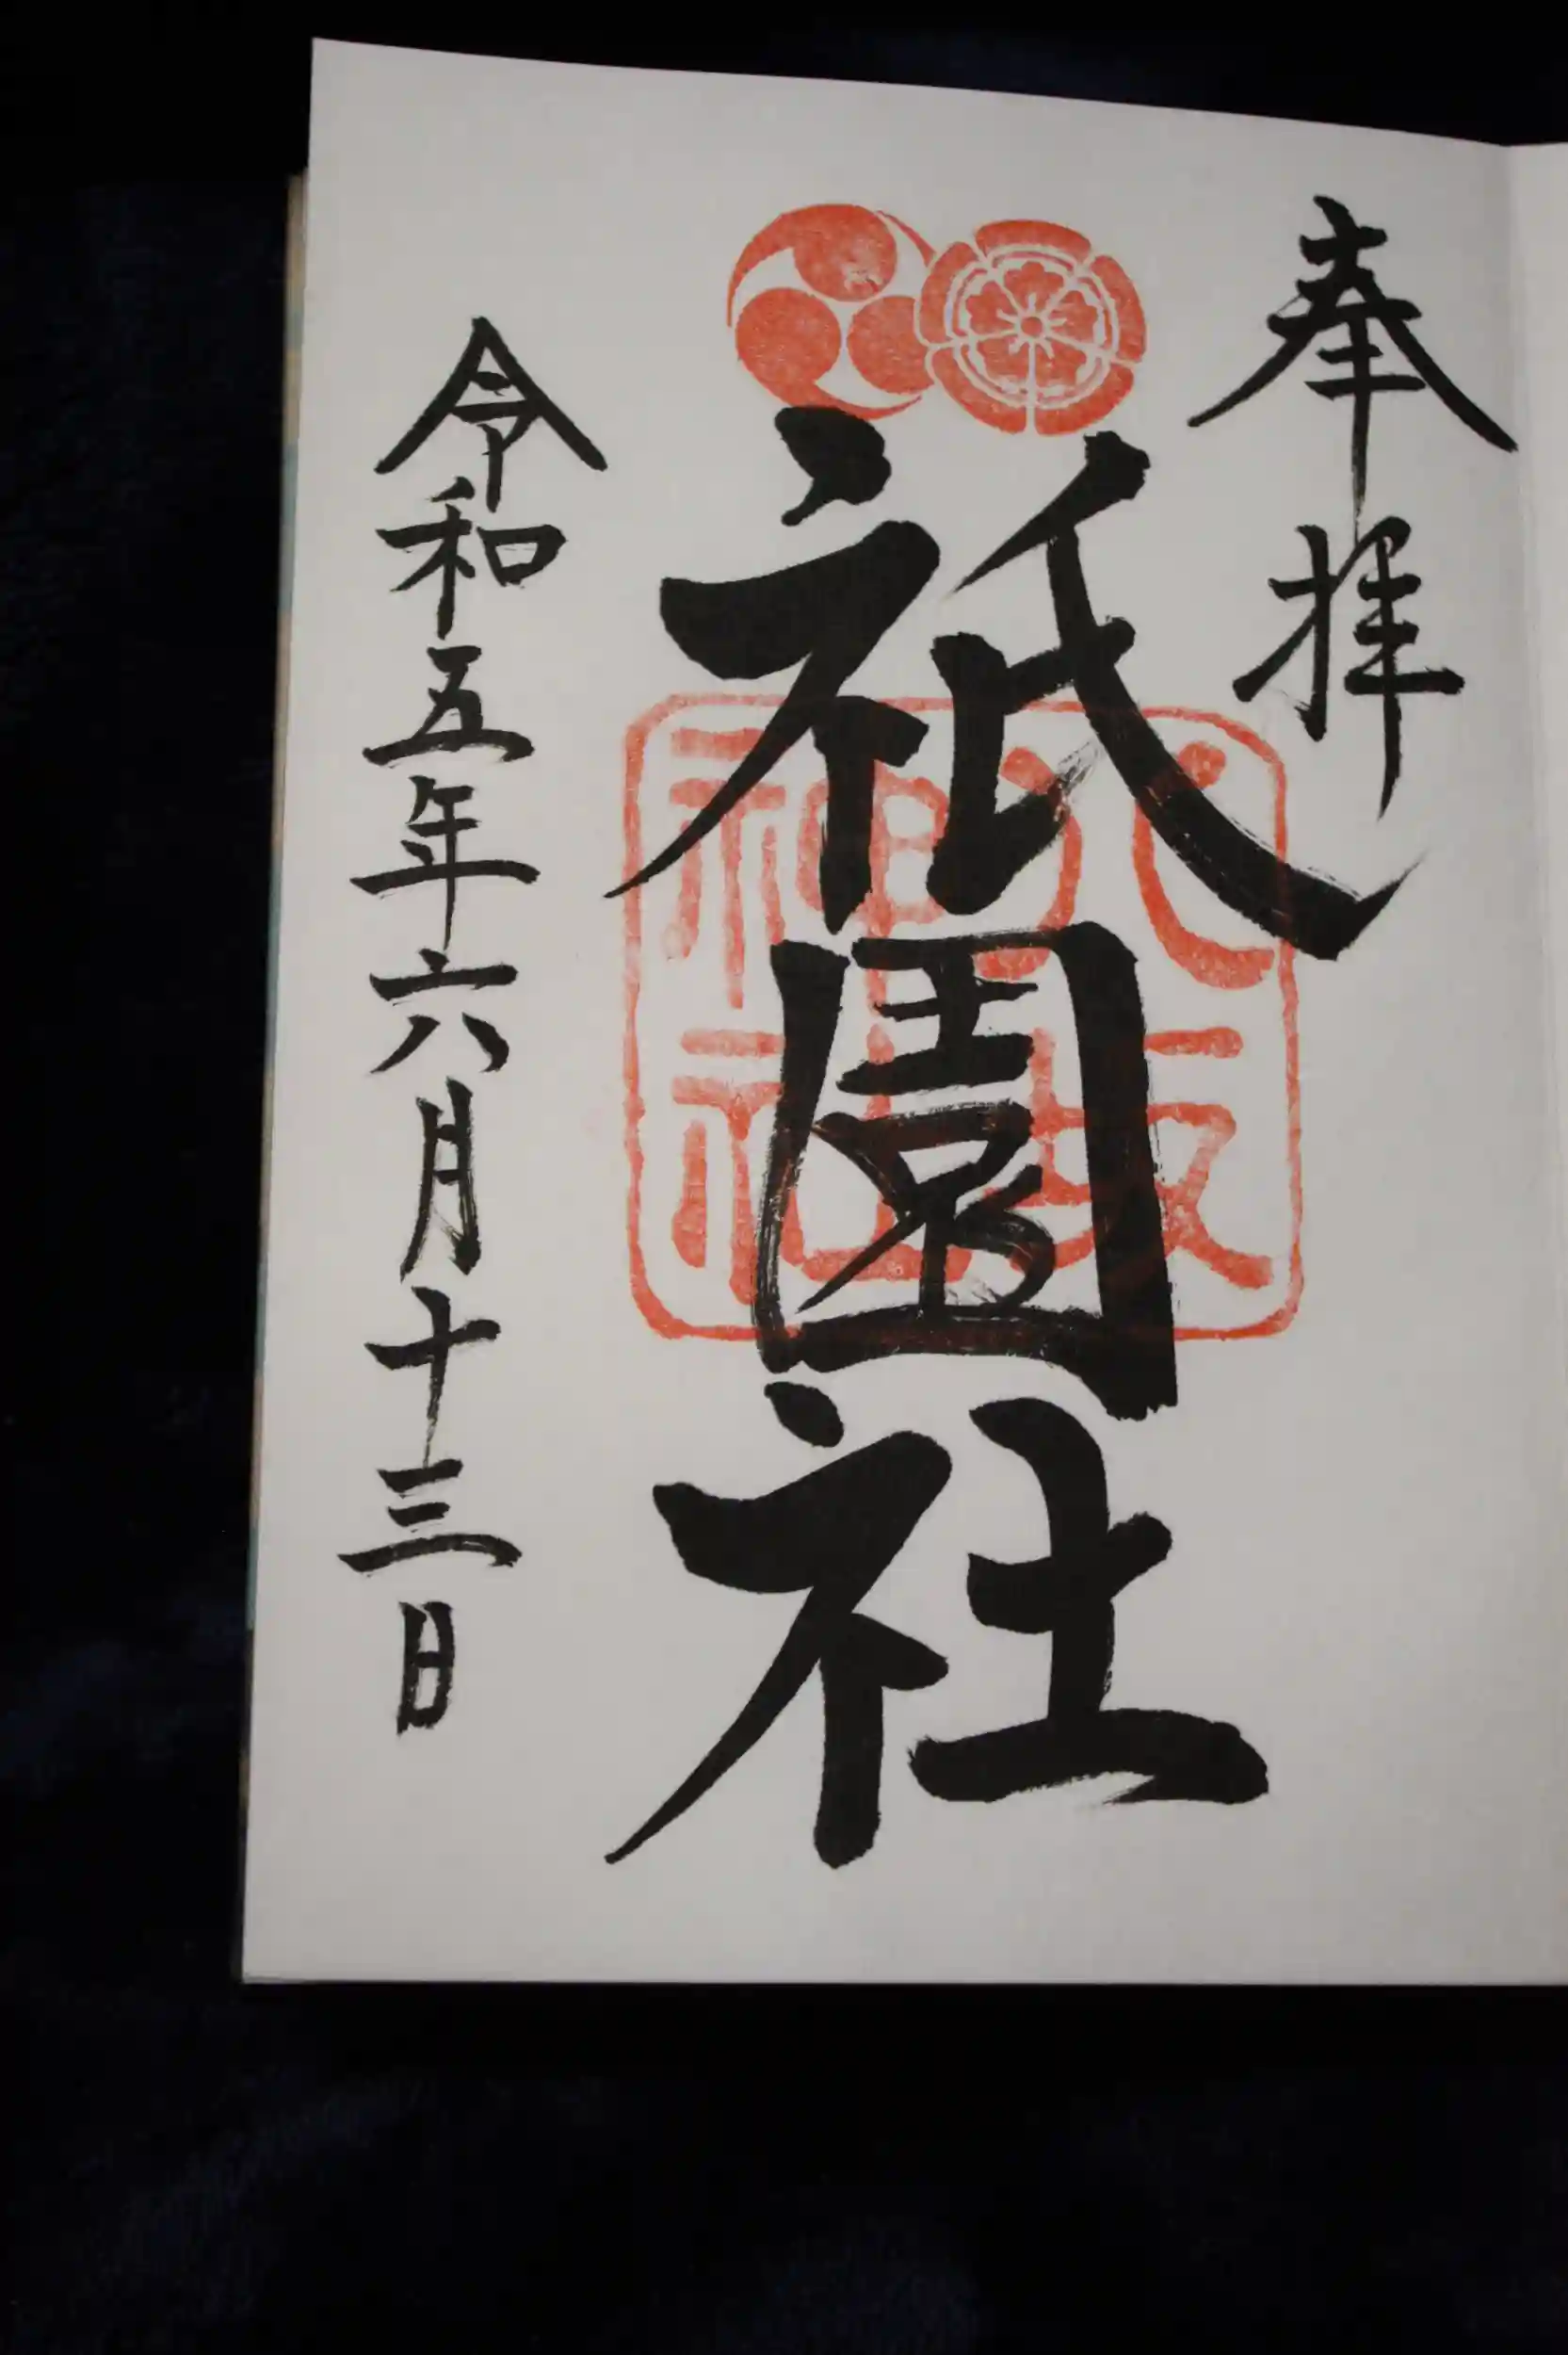 奉拝
祇園社
八坂
神社
令和五年六月十三日